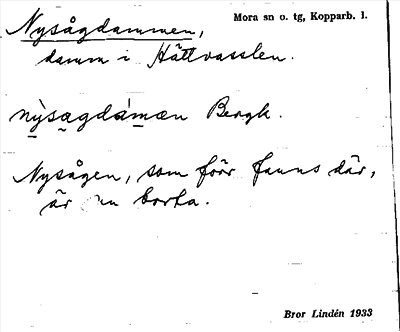 Nysågdammen,
Mora sn o. tg, Kopparb. l.
damm i Hättvasslen.
nỳsagdámæn Bergk.
Nysågen, som förr fanns där,
är nu borta.
Bror Lindén 1933